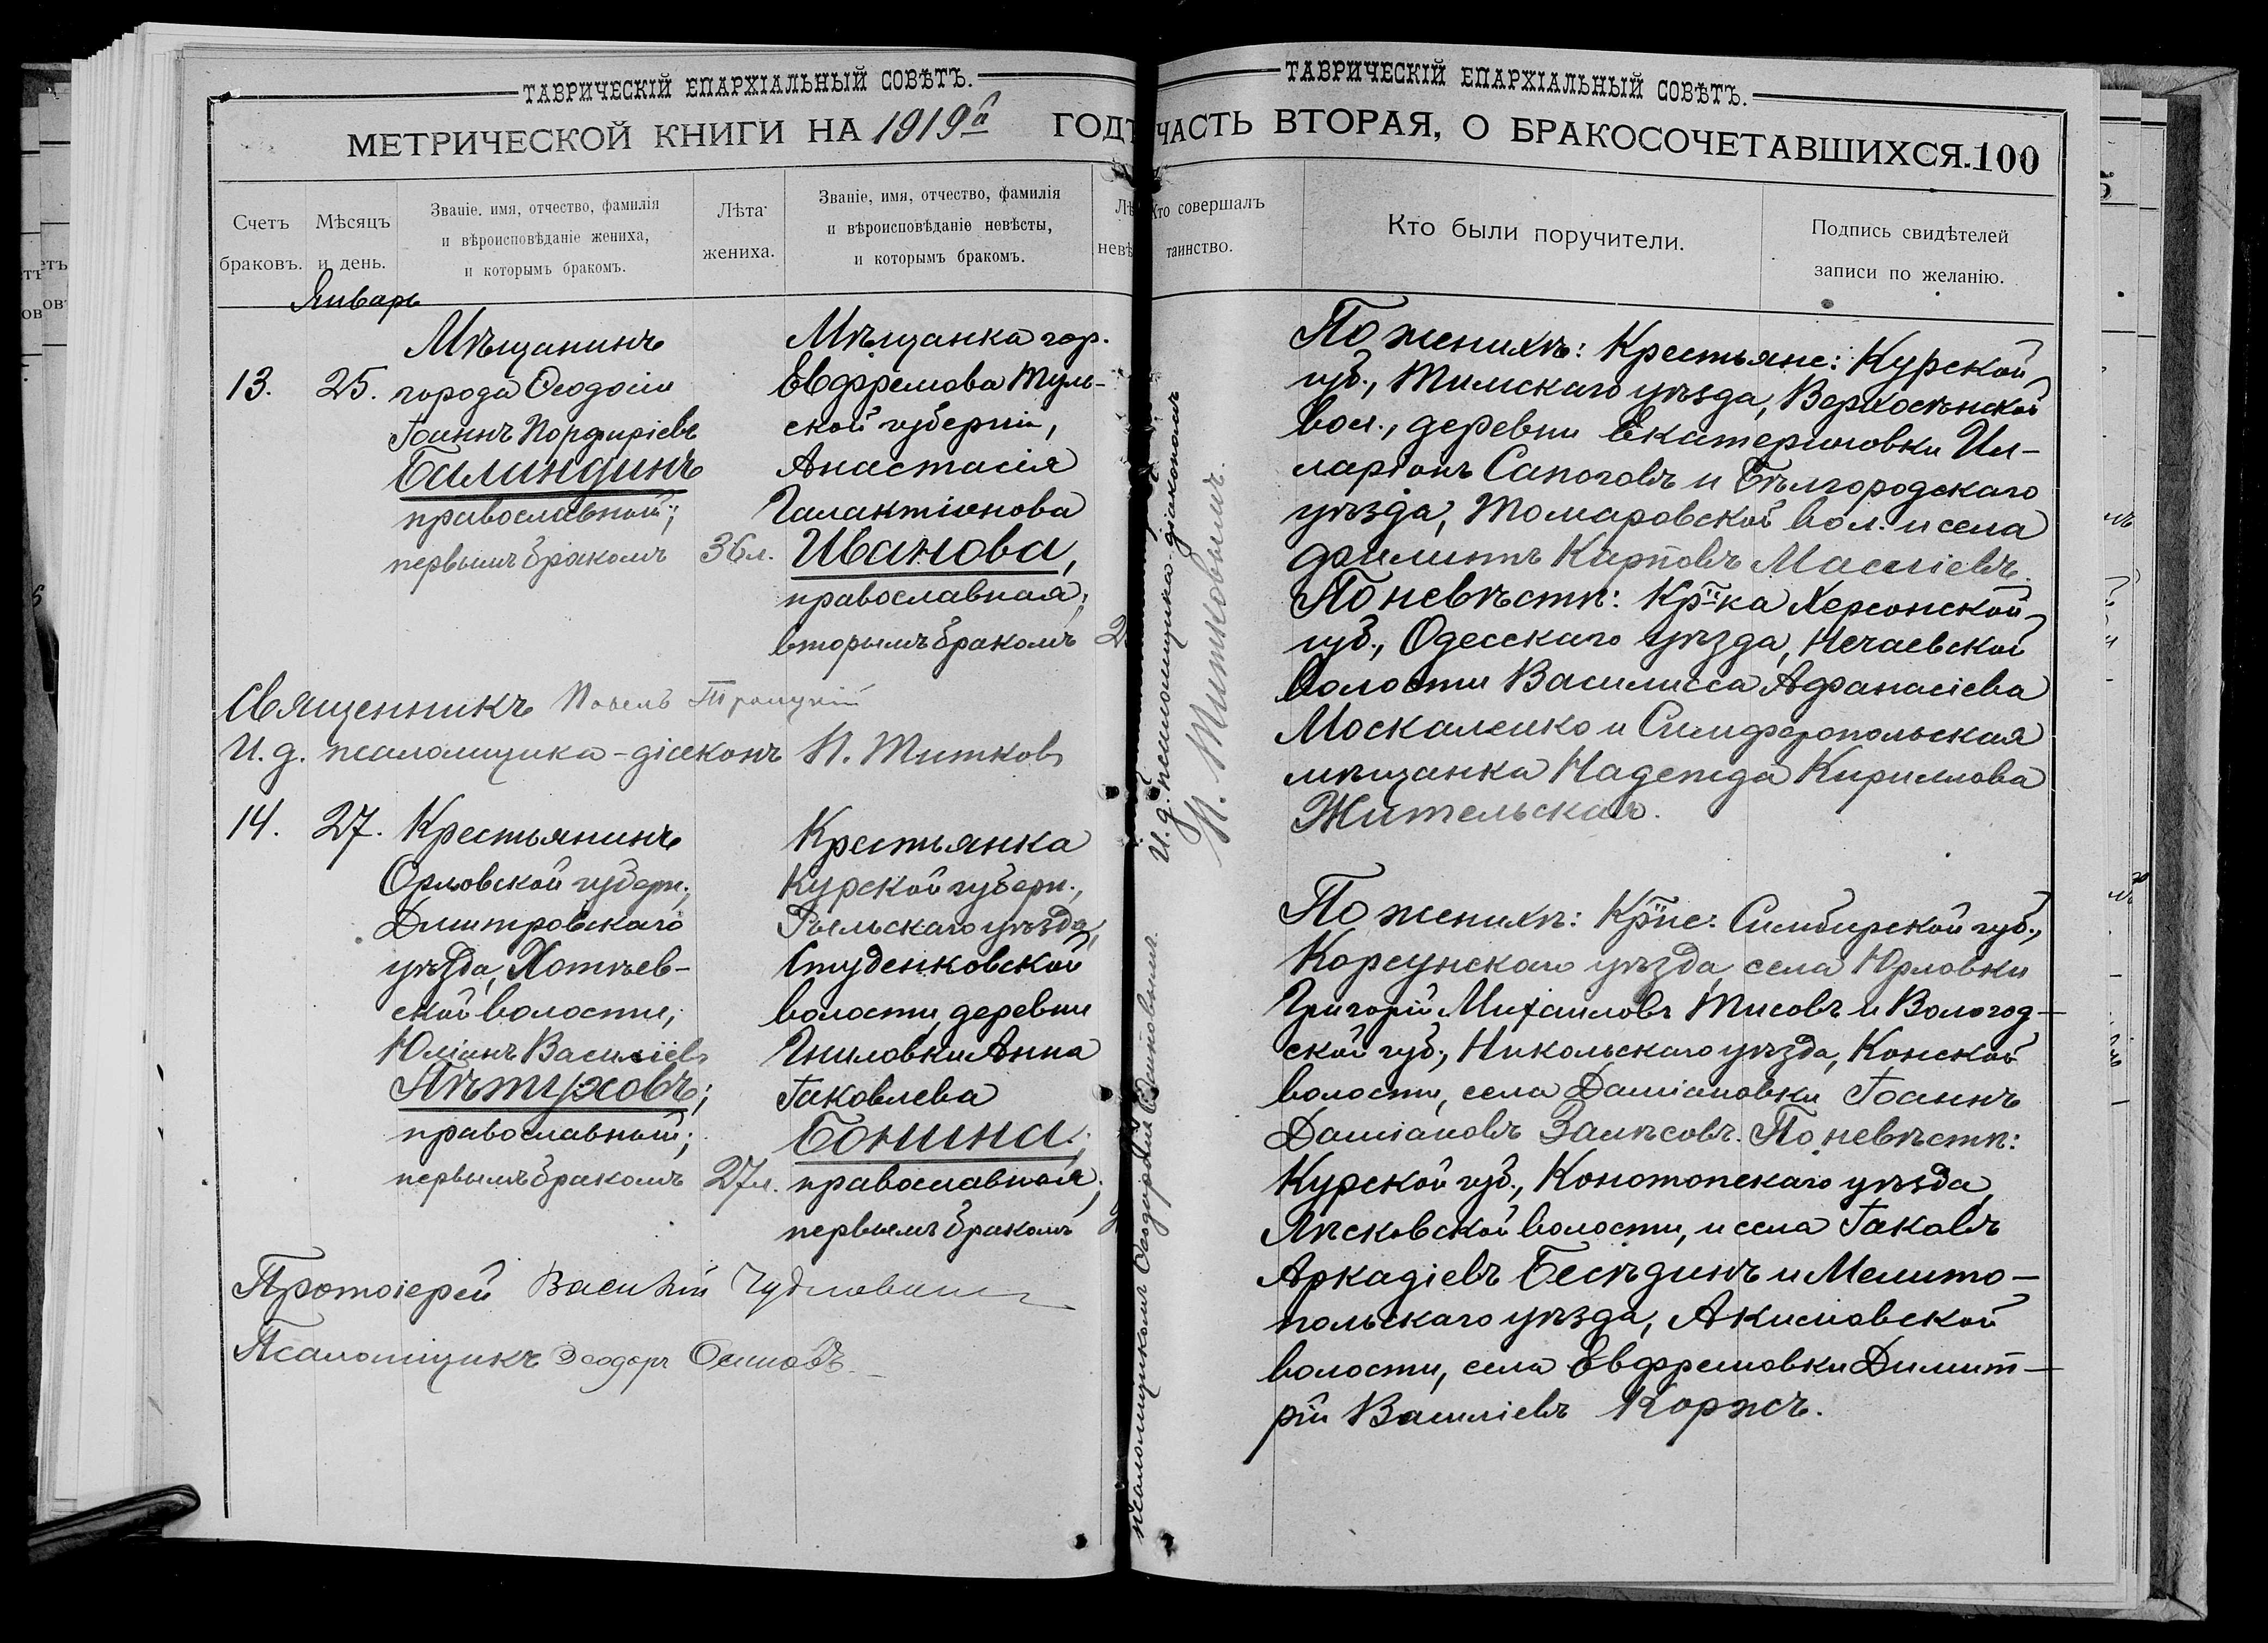 ТАВРИЧЕСКІЙ ЕПАРХІАЛЬНЫЙ СОВѢТЪ.
МЕТРИЧЕСКОЙ КНИГИ НА 1919й ГОДЪ
Счетъ браковъ.
Мѣсяцъ и день.
Званіе, имя, отчество, фамилія
и вѣроисповѣданіе жениха,
и которымъ бракомъ.
Лѣта жениха.
Званіе, имя, отчество, фамилія
и вѣроисповѣданіе невѣсты,
и которымъ бракомъ.
Январь
13.
25.
Мѣщанинъ
города Ѳеодосіи
Іоаннъ Порфиріевъ
Балиндинъ
православный;
первымъ бракомъ
36л.
Мѣщанка гор.
Евдфремова Туль-
ской губерніи,
Анастасія
Галактіонова
Иванова,
православная;
вторымъ бракомъ
Священникъ Павелъ Троицкій
И. д. псаломщика-діаконъ Н. Титковъ
14.
27.
Крестьянинъ
Орловской губерн.,
Дмитровскаго
уѣзда, Хотѣев-
ской волости,
Юліанъ Василіевъ
Пѣтуховъ;
православный;
первымъ бракомъ
27л.
Крестьянка
Курской губерн.,
Рыльскаго уѣзда,
Студенковской
волости, деревни
Гниловки Анна
Іаковлева
Бонина;
православная;
первымъ бракомъ
Протоіерей Василій
Псаломщикъ Ѳеодоръ Осиповъ.
ТАВРИЧЕСКІЙ ЕПАРХІАЛЬНЫЙ СОВѢТЪ.
ЧАСТЬ ВТОРАЯ, О БРАКОСОЧЕТАВШИХСЯ. 100
Кто совершалъ
таинство.
Кто были поручители.
Подпись свидѣтелей
записи по желанію.
И. д. псаломщика діакономъ
Н. Титковымъ.
псаломщикомъ Ѳеодоромъ Осиповымъ.
По женихѣ: Крестьяне: Курской
губ., Тимскаго уѣзда, Верхосѣнской
вол., деревни Екатериновки Ил-
ларіонъ Сапоговъ и Бѣлгородскаго
уѣзда, Томаровской вол. и села
Филиппъ Карповъ
По невѣстѣ: Кр-ка Херсонской
губ., Одесскаго уѣзда, Нечаевской
волости Василисса Афанасіева
Москаленко и Симферопольская
мѣщанка Надежда Кириллова
Жительская.
По женихѣ: Кр-не: Симбирской губ.,
Корсунскаго уѣзда, села Юрловки
Григорій Михаиловъ Тисовъ и Вологод-
ской губ., Никольскаго уѣзда, Конской
волости, села Даміановки Іоаннъ
Даміановъ Залѣсовъ. По невѣстѣ:
Курской губ., Конотопскаго уѣзда,
волости, и села Іаковъ
Аркадіевъ Бесѣдинъ и Мелито-
польскаго уѣзда, Акимовской
волости, села Евдфремовки Димит-
рій Василіевъ Коржъ.